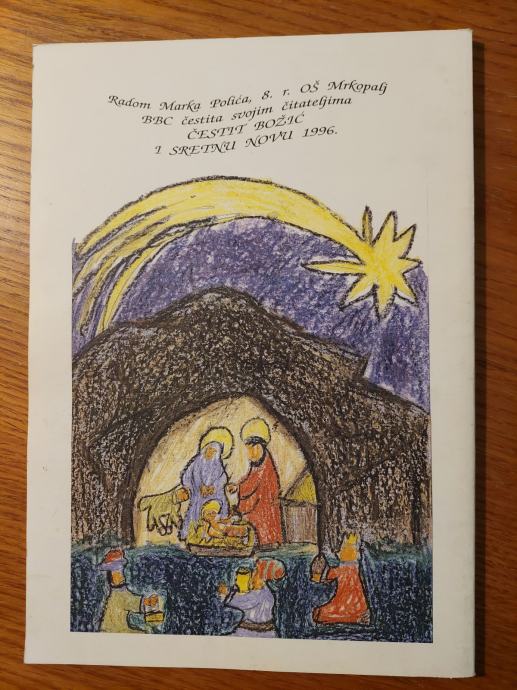 Radom Marka Polića, 8. r. OŠ Mrkopalj
BBC čestita svojim čitateljima
ČESTIT BOŽIĆ
I SRETNU NOVU 1996.